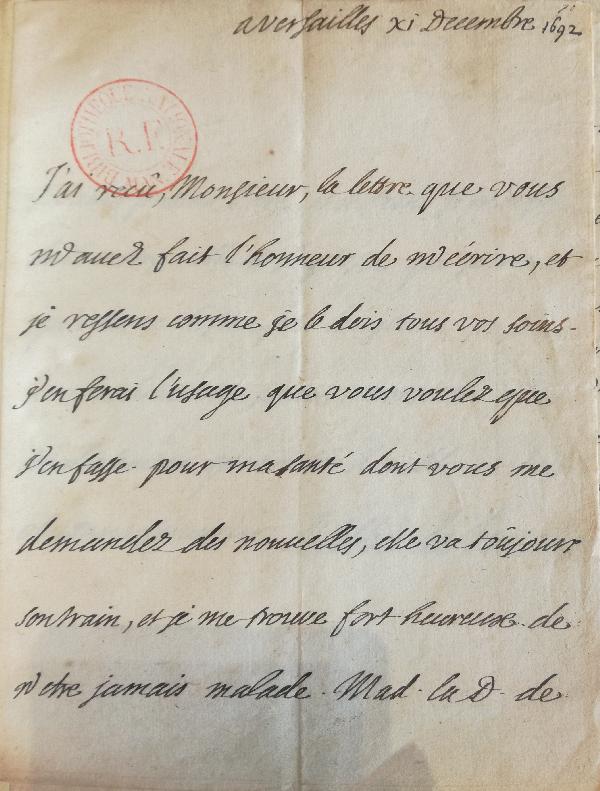 a Versailles xi Decembre 1692
BIBLIOTHEQUE NATIONALE
R.F.
J'ai receu, Monsieur, la lettre que vous
m'auez fait l'honneur de m'écrire, et
je ressens comme je le dois tous vos soins.
j'en ferai l'usage que vous voulez que
j'en fasse. pour ma santé dont vous me
demandez des nouuelles, elle va toûjours
son train, et je me trouue fort heureuse de
n'être jamais malade. Mad. la D. de